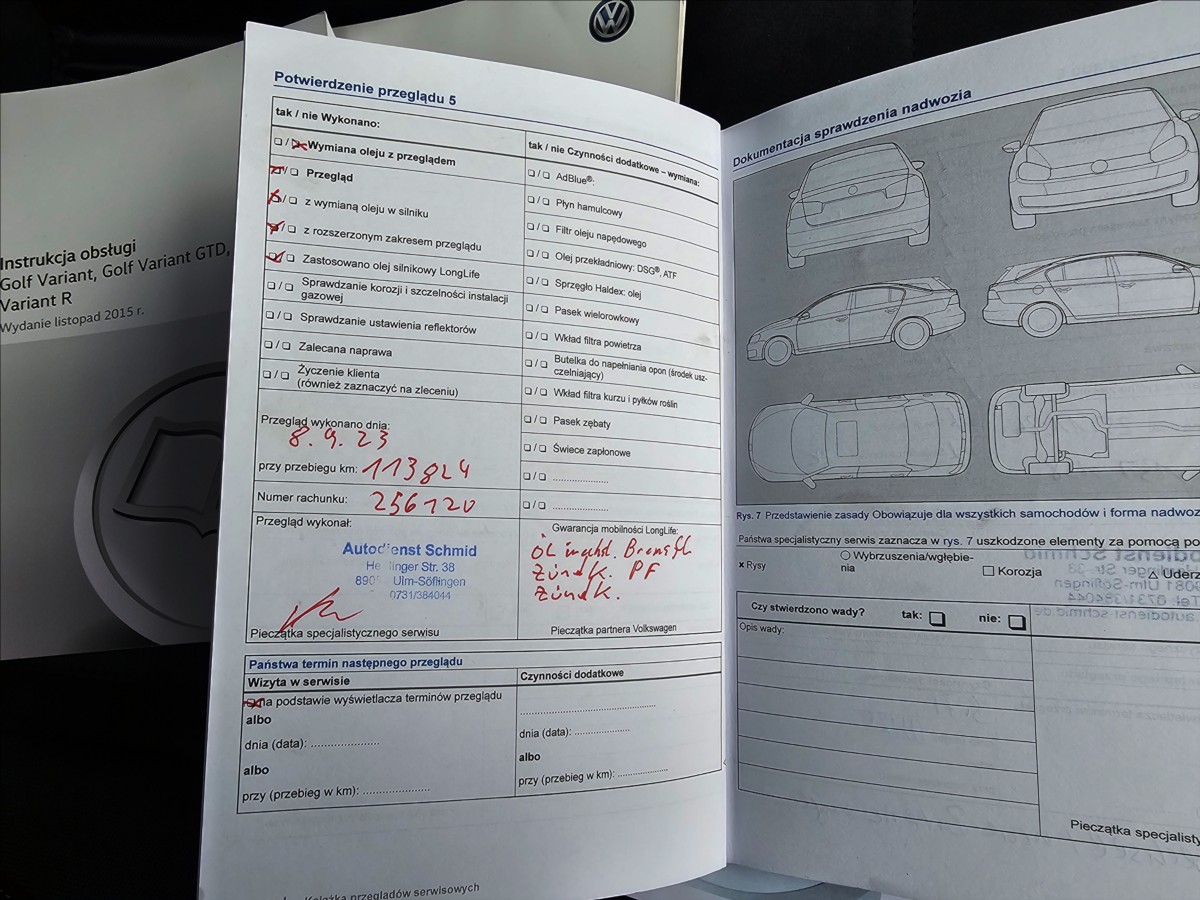 VW
Instrukcja obsługi
Golf Variant, Golf Variant GTD,
Variant R
Wydanie listopad 2015 r.
Potwierdzenie przeglądu 5
tak / nie Wykonano:
Wymiana oleju z przeglądem
Przegląd
z wymianą oleju w silniku
z rozszerzonym zakresem przeglądu
Zastosowano olej silnikowy LongLife
Sprawdzanie korozji i szczelności instalacji
gazowej
Sprawdzanie ustawienia reflektorów
Zalecana naprawa
Życzenie klienta
(również zaznaczyć na zleceniu)
Przegląd wykonano dnia:
8.9.23
przy przebiegu km: 113824
Numer rachunku: 256120
Przegląd wykonał:
Autodienst Schmid
Str. 38
Ulm-Söflingen
0731/384044
Pieczątka specjalistycznego serwisu
tak / nie Czynności dodatkowe – wymiana:
AdBlue®:
Płyn hamulcowy
Filtr oleju napędowego
Olej przekładniowy: DSG®, ATF
Sprzęgło Haldex: olej
Pasek wielorowkowy
Wkład filtra powietrza
Butelka do napełniania opon (środek usz-
czelniający)
Wkład filtra kurzu i pyłków roślin
Pasek zębaty
Świece zapłonowe
Gwarancja mobilności LongLife:
ÖL
PF
Pieczątka partnera Volkswagen
Państwa termin następnego przeglądu
Wizyta w serwisie
na podstawie wyświetlacza terminów przeglądu
albo
dnia (data): .....................
albo
przy (przebieg w km): .....................
Czynności dodatkowe
dnia (data): .................
albo
przy (przebieg w km): ...............
Książka przeglądów serwisowych
Dokumentacja sprawdzenia nadwozia
Rys. 7 Przedstawienie zasady Obowiązuje dla wszystkich samochodów i forma nadwoz
Państwa specjalistyczny serwis zaznacza w rys. 7 uszkodzone elementy za pomocą po
x Rysy
Wybrzuszenia/wgłębie-
nia
Korozja
Uderz
Czy stwierdzono wady? tak: nie:
Opis wady:
Pieczątka specjalisty